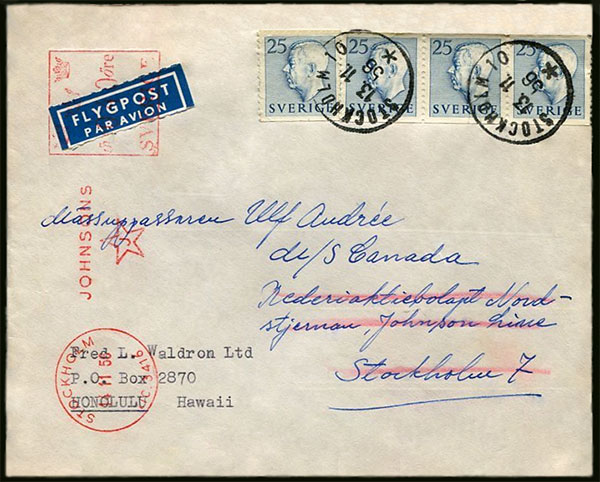 25 25 25 25
SVERIGE SVERIGE SVERIGE SVERIGE
STOCKHOLM 10
13 11
56
STOCKHOLM 10
13 11
56
öre
FLYGPOST
PAR AVION
JOHNSONS
J
Mässuppassaren Ulf Andrée
de/S Canada
Rederiaktiebolaget Nord-
stjernan Johnson Line
Stockholm 7
STOCKHOLM
11 56
Fred L. Waldron Ltd
P.O. Box 2870
HONOLULU Hawaii